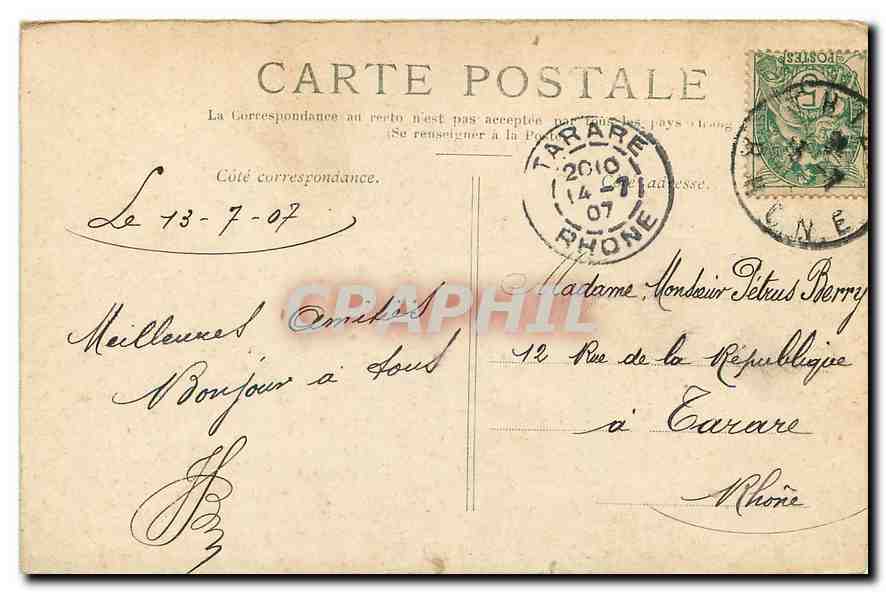 CARTE POSTALE
La Correspondance au recto n'est pas acceptée par tous les pays
(Se renseigner à la Poste
Côté correspondance.
Côté adresse.
POSTES
5
TARARE
20 10
14 -7
07
RHONE
Le 13-7-07
Meilleures amitiés
Bonjour à tous
Madame, Monsieur Pétrus Berry
12 Rue de la République
à Tarare
Rhône
CRAPHIL